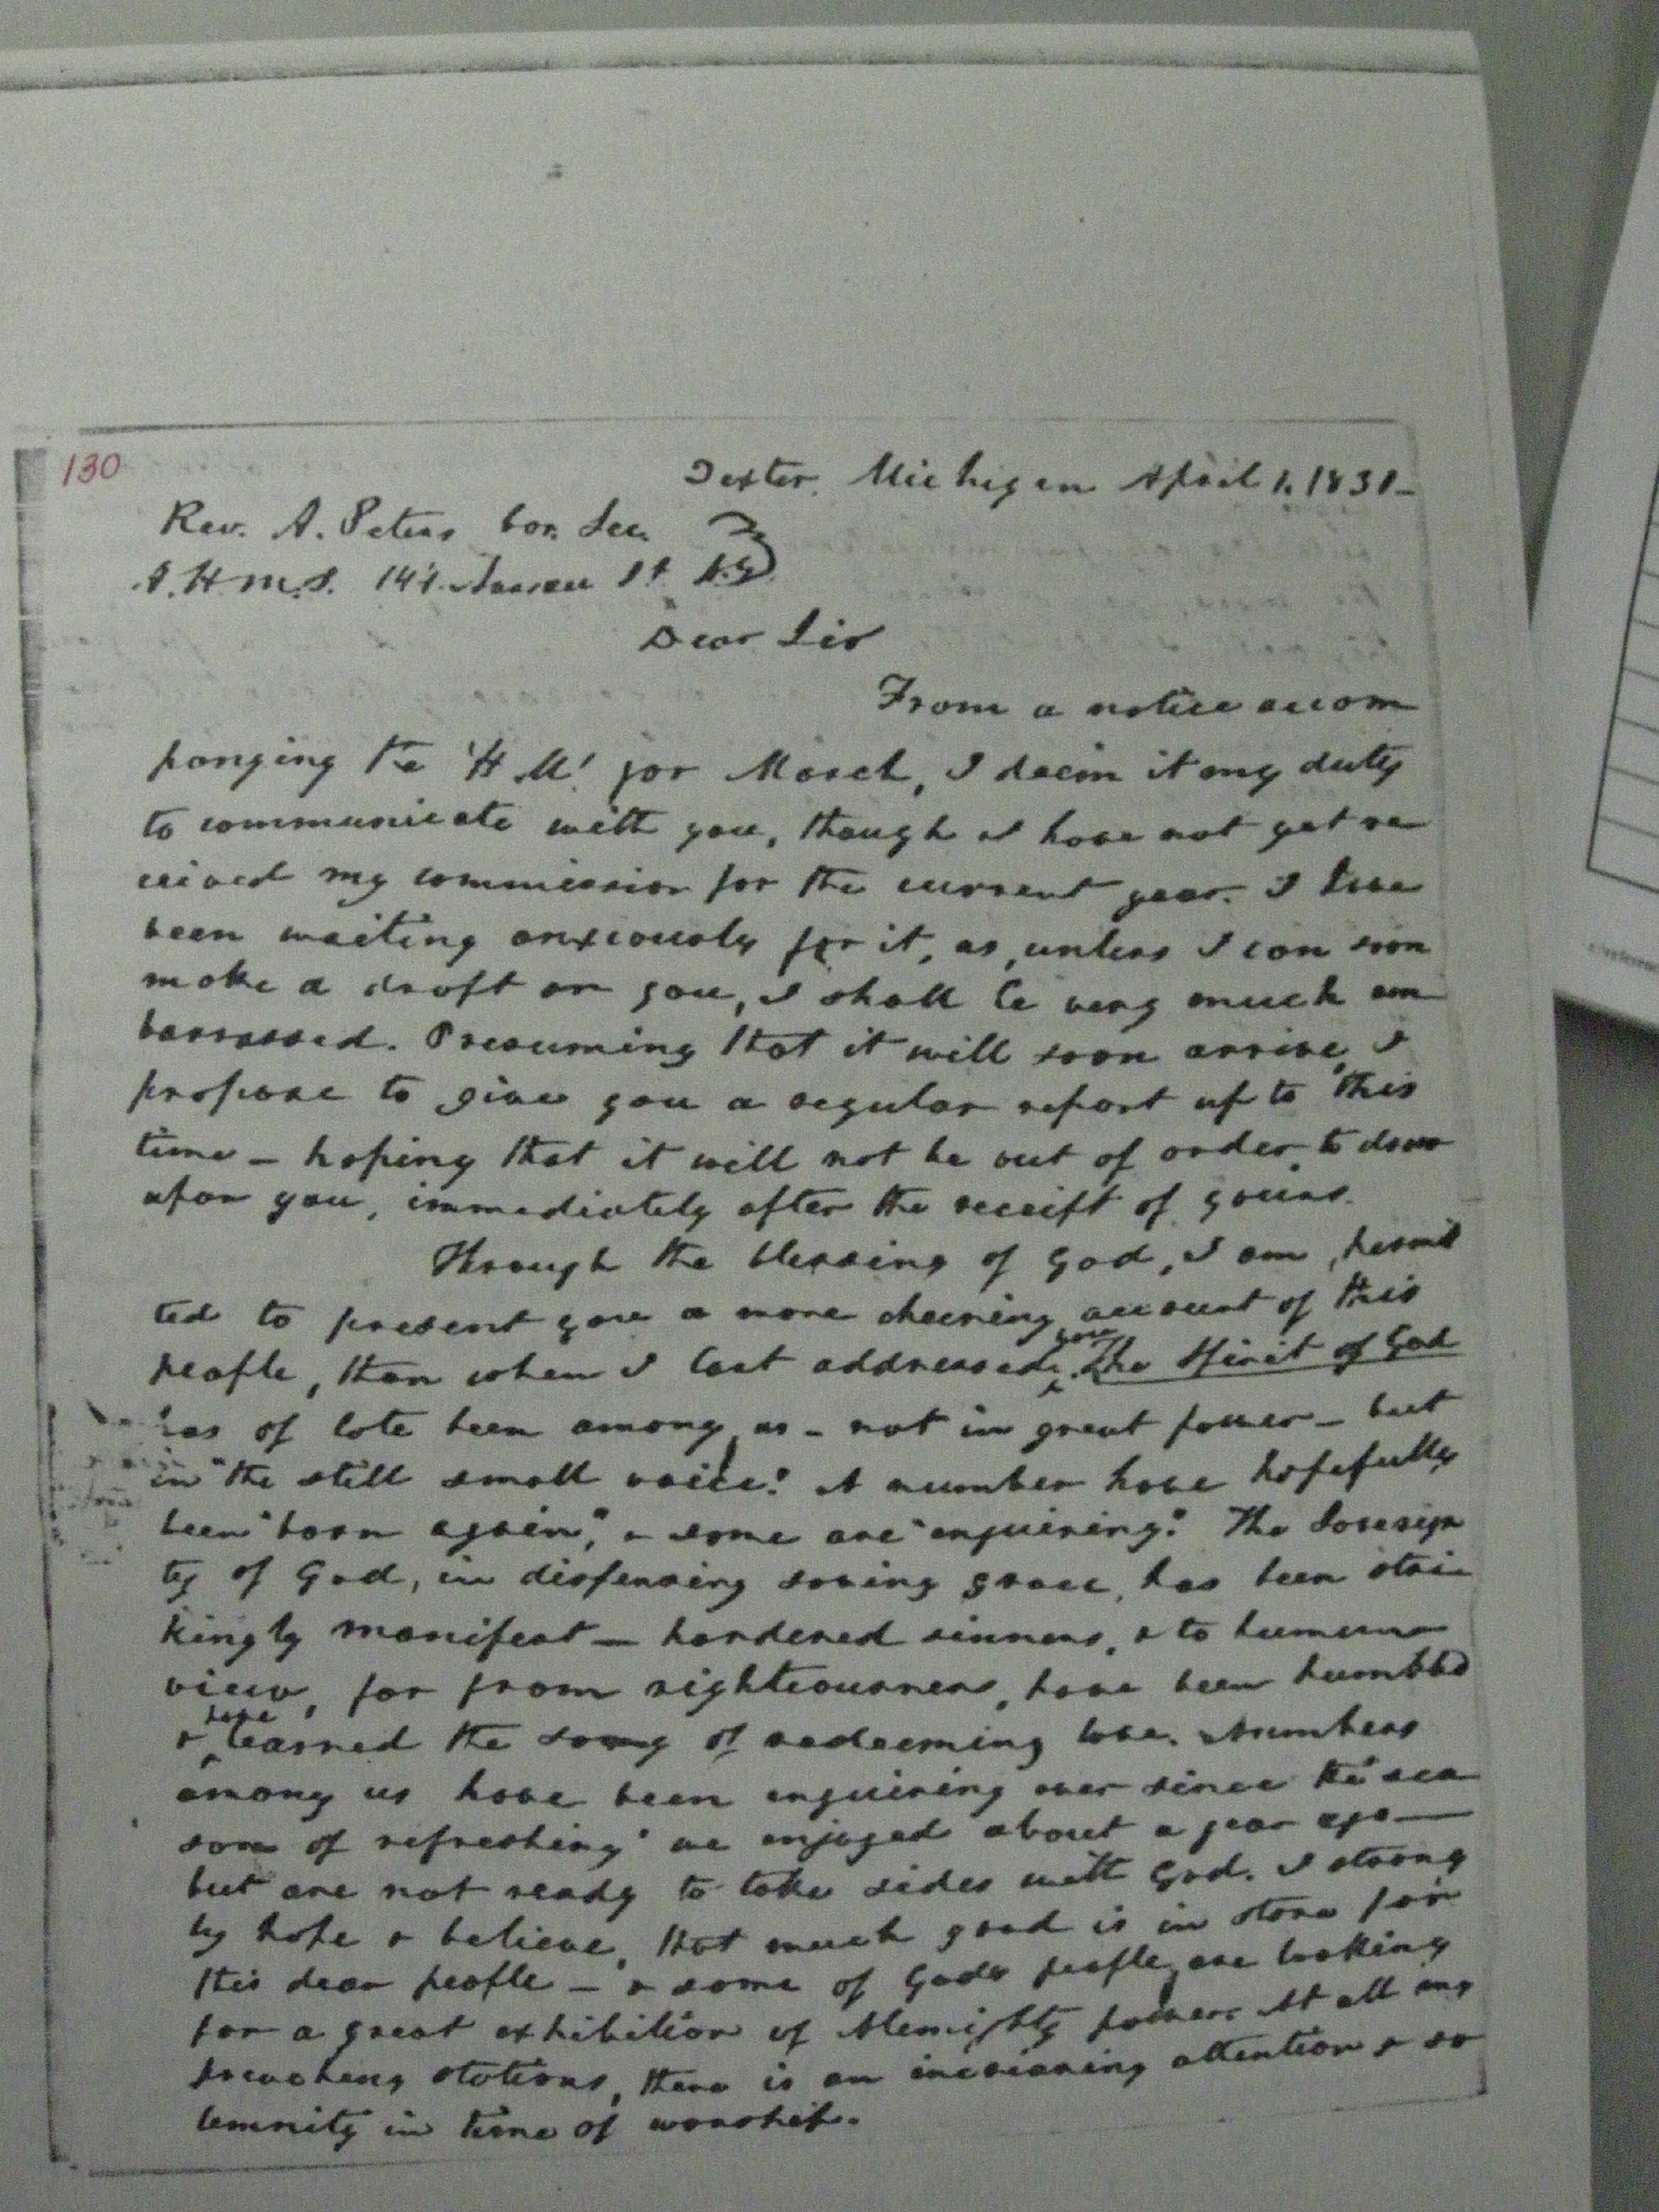 130
Dexter, Michigan April 1, 1831-
Rev. A. Peters Cor. Sec.
A.H.M.S. 144 Nassau St N.Y.
Dear Sir
From a notice accom
panying the 'H.M.' for March, I deem it my duty
to communicate with you, though I have not yet re
ceived my commission for the current year. I have
been waiting anxiously for it, as, unless I can soon
make a draft on you, I shall be very much em
barrassed. Presuming that it will soon arrive, I
propose to give you a regular report up to this
time - hoping that it will not be out of order, to draw
upon you, immediately after the receipt of yours.
Through the blessing of God, I am permit
ted to present you a more cheering account of this
people, than when I last addressed you. The Spirit of God
has of late been among us - not in great power - but
in "the still small voice." A number have hopefully
been "born again," & some are "enquiring." The Sovereign
ty of God, in dispensing saving grace, has been stri
kingly manifest - hardened sinners, & to human
view, far from righteousness, have been humbled
& have learned the song of redeeming love. Numbers
among us have been enquiring ever since the 'sea
son of refreshing' we enjoyed about a year ago -
but are not ready to take sides with God. I strong
ly hope & believe, that much good is in store for
this dear people - & some of Gods people, are looking
for a great exhibition of Almighty power. At all my
preaching stations, there is an increasing attention & so
lemnity in time of worship.